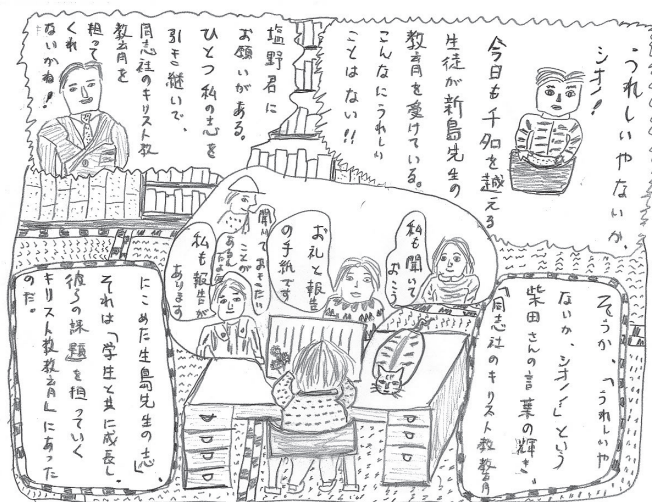 うれしいやないか、
シオノ!
今日も千名を越える
生徒が新島先生の
教育を受けている。
こんなにうれしい
ことはない!!
塩野君に
お願いがある。
ひとつ私の志を
引き継いで、
同志社のキリスト教
教育を
担って
くれ
ないかね!
私も聞いて
おこう
お礼と報告
の手紙です
聞いておきたい
ことが
私も報告が
あります
そうか、「うれしいや
ないか、シオノ!」という
柴田さんの言葉の輝き。
「同志社のキリスト教教育」
にこめた生島先生の志。
それは「学生と共に成長し、
彼らの課題を担っていく
キリスト教教育」にあった
のだ。